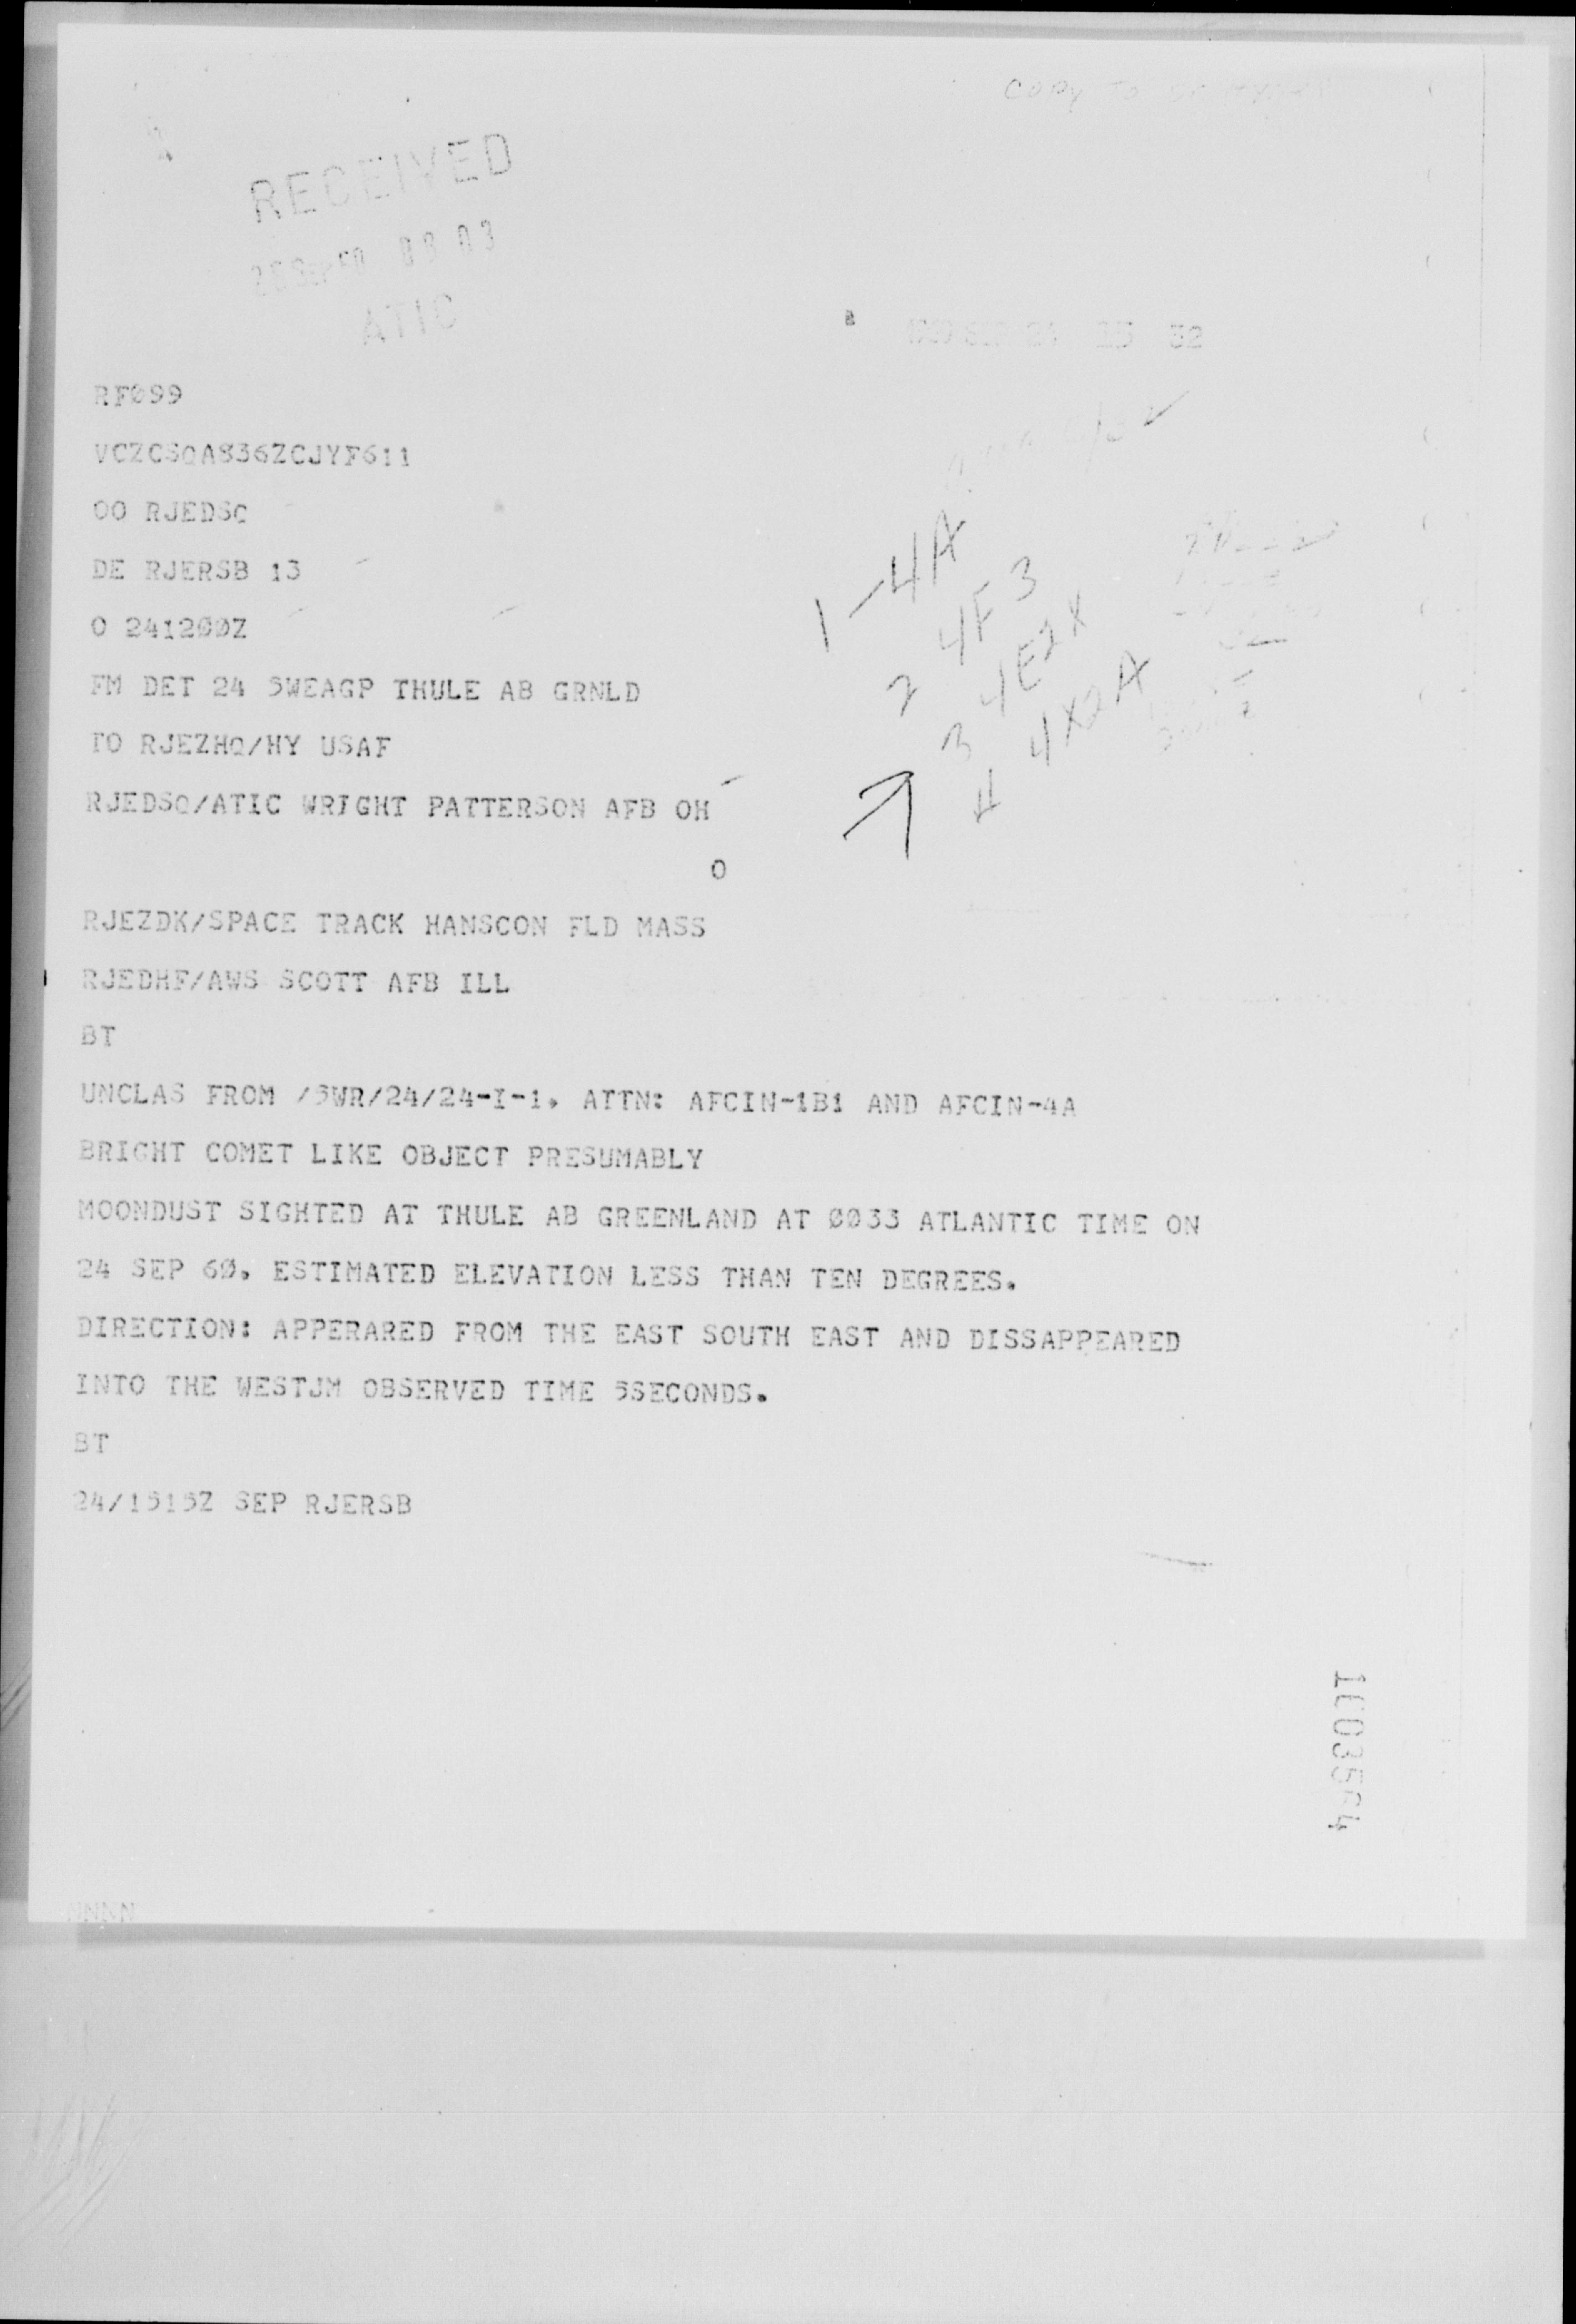 copy to
RECEIVED
ATIC
32
RFØ99
VCZCSQA836ZCJYF611
OO RJEDSQ
DE RJERSB 13
O 2412ØØZ
FM DET 24 5WEAGP THULE AB GRNLD
TO RJEZHQ/HY USAF
RJEDSQ/ATIC WRIGHT PATTERSON AFB OH
O
RJEZDK/SPACE TRACK HANSCON FLD MASS
RJEDHF/AWS SCOTT AFB ILL
BT
UNCLAS FROM /5WR/24/24-I-1. ATTN: AFCIN-1B1 AND AFCIN-4A
BRIGHT COMET LIKE OBJECT PRESUMABLY
MOONDUST SIGHTED AT THULE AB GREENLAND AT ØØ33 ATLANTIC TIME ON
24 SEP 6Ø. ESTIMATED ELEVATION LESS THAN TEN DEGREES.
DIRECTION: APPERARED FROM THE EAST SOUTH EAST AND DISSAPPEARED
INTO THE WESTJM OBSERVED TIME 5SECONDS.
BT
24/1515Z SEP RJERSB
1-4A
2 4F3
3 4E2X
4 4X2A
NNNN